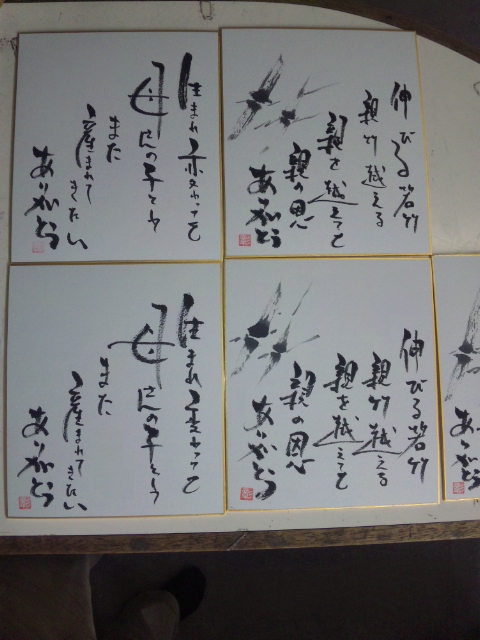 生まれ変わっても
母さんの子として
また
産まれて
きたい
ありがとう
伸びる若竹
親竹越える
親を越えて
親の恩
ありがとう
生まれ変わっても
母さんの子として
また
産まれて
きたい
ありがとう
伸びる若竹
親竹越える
親を越えて
親の恩
ありがとう
ありがとう